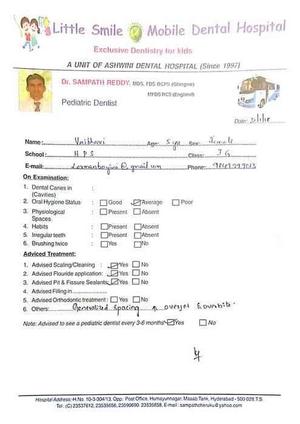 Little Smile Mobile Dental Hospital
Exclusive Dentistry for kids
A UNIT OF ASHWINI DENTAL HOSPITAL (Since 1997)
Dr. SAMPATH REDDY, MDS, FDS RCPS (Glasgow)
MFDS RCS (England)
Pediatric Dentist
Date:
Name: Vaibhavi Age: 5 yrs Sex: Female
School: H P S Class:
E-mail: Phone:
On Examination:
1. Dental Caries in (Cavities) :
2. Oral Hygiene Status : Good Average Poor
3. Physiological Spaces : Present Absent
4. Habits : Present Absent
5. Irregular teeth : Present Absent
6. Brushing twice : Yes No
Adviced Treatment:
1. Advised Scaling/Cleaning : Yes No
2. Advised Flouride application: Yes No
3. Advised Pit & Fissure Sealants: Yes No
4. Advised Filling in
5. Advised Orthodontic treatment : Yes No
6. Others: Generalized Spacing overjet & overbite.
Note: Advised to see a pediatric dentist every 3-6 months Yes No
Hospital Address: H.No. 10-3-304/13, Opp. Post Office, Humayunnagar, Masab Tank, Hyderabad - 500 028 T.S
Tel: (C) 23537612, 23535656, 23590690 23535658, E-mail : sampathcheruku@yahoo.com